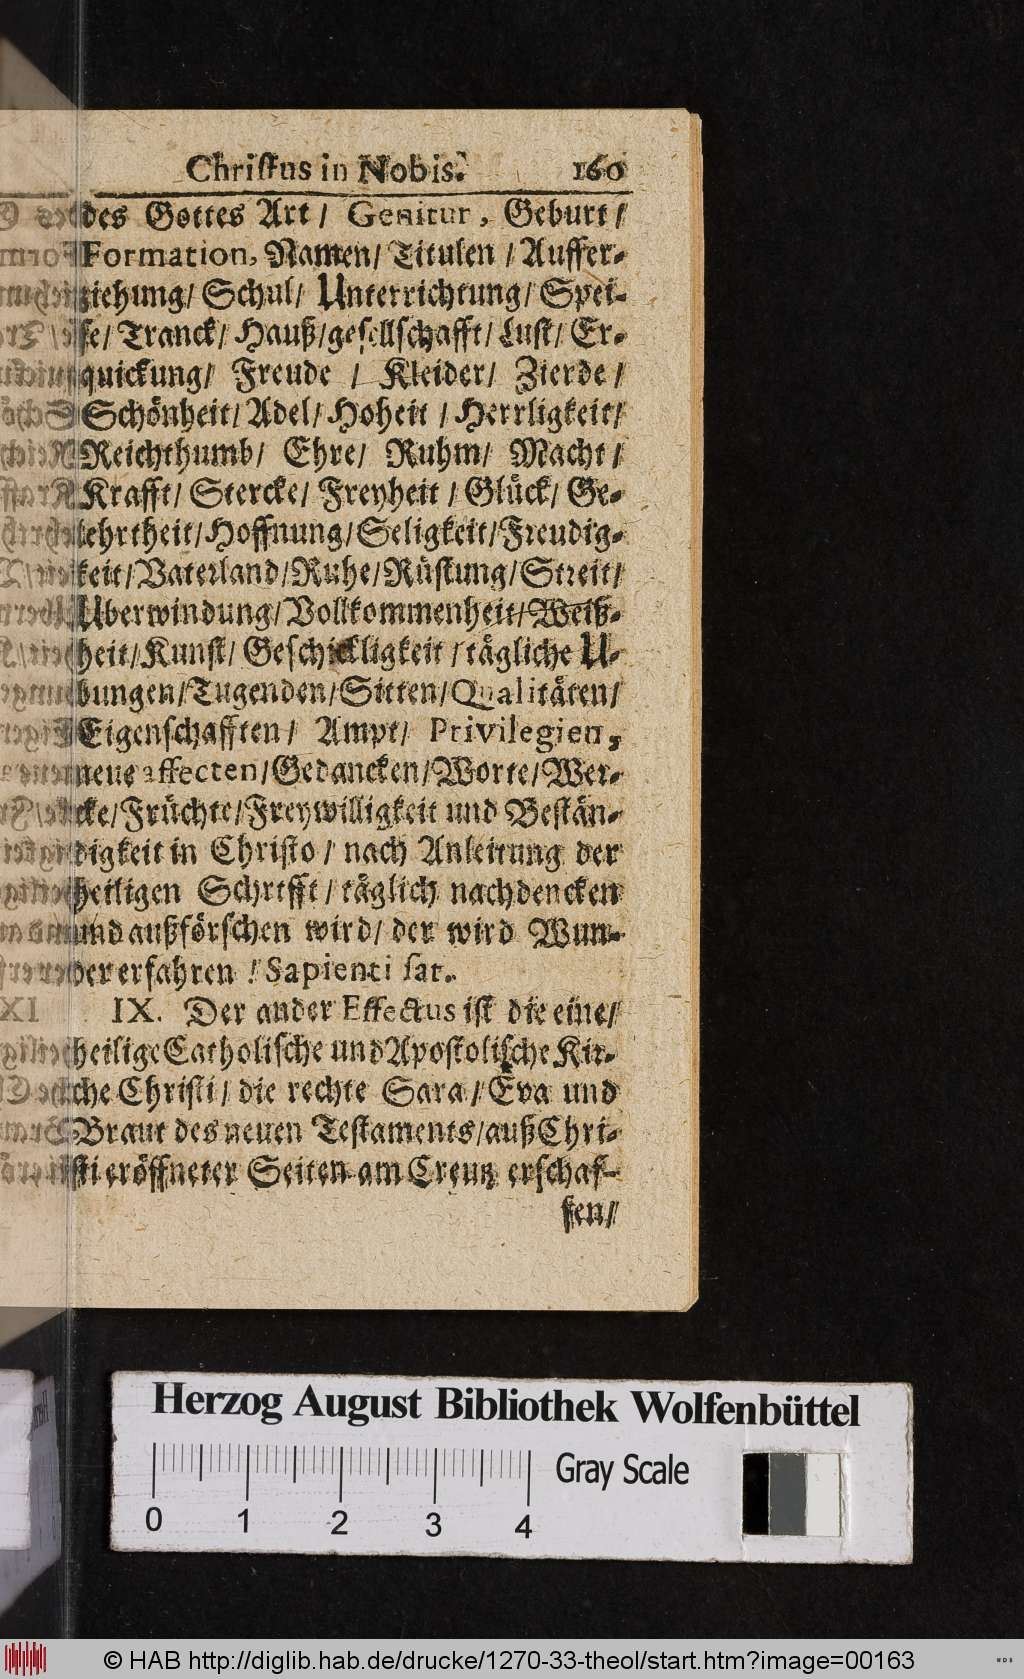 Christus in Nobis. 160
des Gottes Art/ Genitur, Geburt/
Formation, Namen/ Titulen / Auffer-
ziehung/ Schul/ Unterrichtung/ Spei-
se/ Tranck/ Hauß/gesellschafft/ Lust/ Er-
quickung/ Freude / Kleider/ Zierde/
Schönheit/ Adel/ Hoheit / Herrligkeit/
Reichthumb/ Ehre/ Ruhm/ Macht/
Krafft/ Stercke/ Freyheit / Glück/ Ge-
lehrtheit/ Hoffnung/ Seligkeit/ Freudig-
keit/ Vaterland/ Ruhe/ Rüstung/ Streit/
Uberwindung/ Vollkommenheit/ Weiß-
heit/ Kunst/ Geschickligkeit / tägliche U-
bungen/ Tugenden/ Sitten/ Qualitäten/
Eigenschafften/ Ampt/ Privilegien,
neue affecten/ Gedancken/ Worte/ Wer-
cke/ Früchte/ Freywilligkeit und Bestän-
digkeit in Christo / nach Anleitung der
heiligen Schrifft / täglich nachdencken
und außförschen wird/ der wird Wun-
der erfahren ! Sapienti sat.
IX. Der ander Effectus ist die eine/
heilige Catholische und Apostolische Kir-
che Christi / die rechte Sara / Eva und
Braut des neuen Testaments/ auß Chri-
sti eröffneter Seiten am Creutz erschaf-
fen/
Herzog August Bibliothek Wolfenbüttel
Gray Scale
0 1 2 3 4
© HAB http://diglib.hab.de/drucke/1270-33-theol/start.htm?image=00163